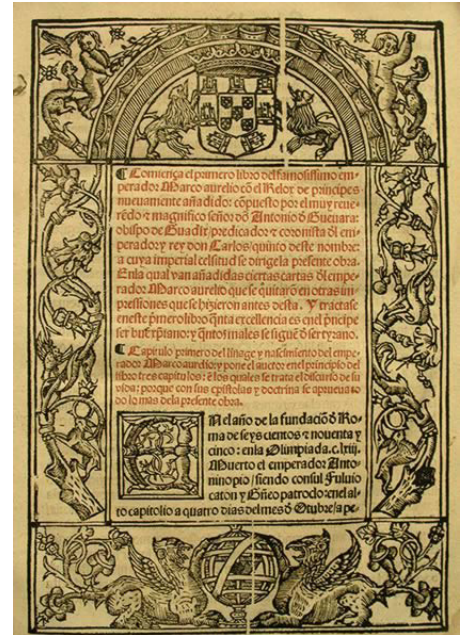 ¶ Comiença el primero libro del famosissimo em-
perador Marco aurelio cõ el Relox de principes
nueuamente añadido: cõpuesto por el muy reue-
rẽdo ⁊ magnifico señor dõ Antonio ð Gueuara:
obispo de Guadix/predicador ⁊ coronista ðl em-
perador: y rey don Carlos/quinto deste nombre:
a cuya imperial celsitud se dirige la presente obra.
Enla qual van añadidas ciertas cartas ðl empe-
rador Marco aurelio que se quitarõ en otras im-
pressiones que se hizieron antes desta. Y tractase
eneste primero libro quãta excellencia es enel prĩcipe
ser buẽ xp̃iano: y quãtos males se siguẽ ð ser tyrano.
¶ Capitulo primero del linage y nascimiento del empe-
rador Marco aurelio: y pone el auctor enel principio del
libro tres capitulos: ẽ los quales se trata el discurso de su
vida: porque con sus epistolas y doctrina se aprueua to
do lo mas dela presente obra.
EN el año de la fundaciõ ð Ro-
ma de seys cientos ⁊ nouenta y
cinco: enla Olimpiada.c.lxiij.
Muerto el emperador Anto-
nino pio/siendo consul Fuluio
caton y Gneo patroclo: enel al-
to capitolio a quatro dias del mes ð Otubre/a pe-